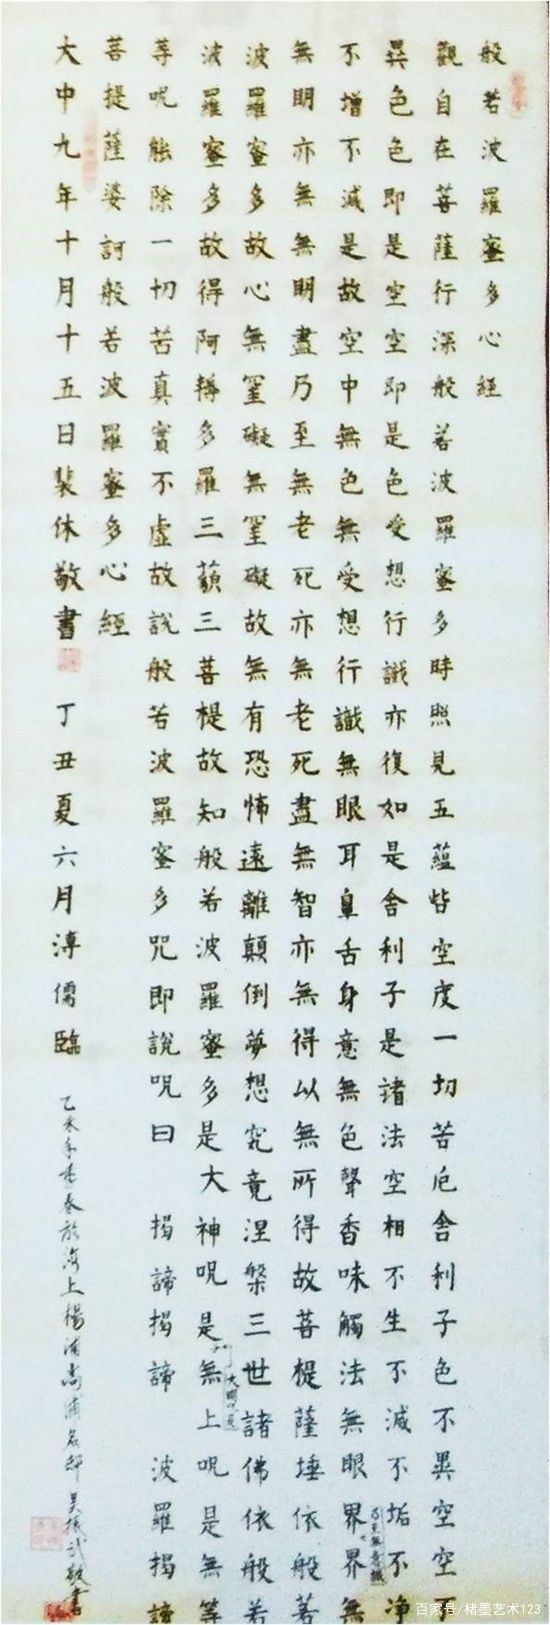 般若波羅蜜多心經
觀自在菩薩行深般若波羅蜜多時照見五蘊皆空度一切苦厄舍利子色不異空空
異色色即是空空即是色受想行識亦復如是舍利子是諸法空相不生不滅不垢不净
不增不減是故空中無色無受想行識無眼耳鼻舌身意無色聲香味觸法無眼界乃至無意識界無
無明亦無無明盡乃至無老死亦無老死盡無智亦無得以無所得故菩提薩埵依般若
波羅蜜多故心無罣礙無罣礙故無有恐怖遠離顛倒夢想究竟涅槃三世諸佛依般若
波羅蜜多故得阿耨多羅三藐三菩提故知般若波羅蜜多是大神呪是大明呪是無上呪是無等
等呪能除一切苦真實不虛故說般若波羅蜜多咒即說呪曰 揭諦揭諦 波羅揭諦
菩提薩婆訶般若波羅蜜多心經
大中九年十月十五日裴休敬書 丁丑夏六月溥儒臨
乙未年季春於海上楊浦
百家号/楮墨艺术123